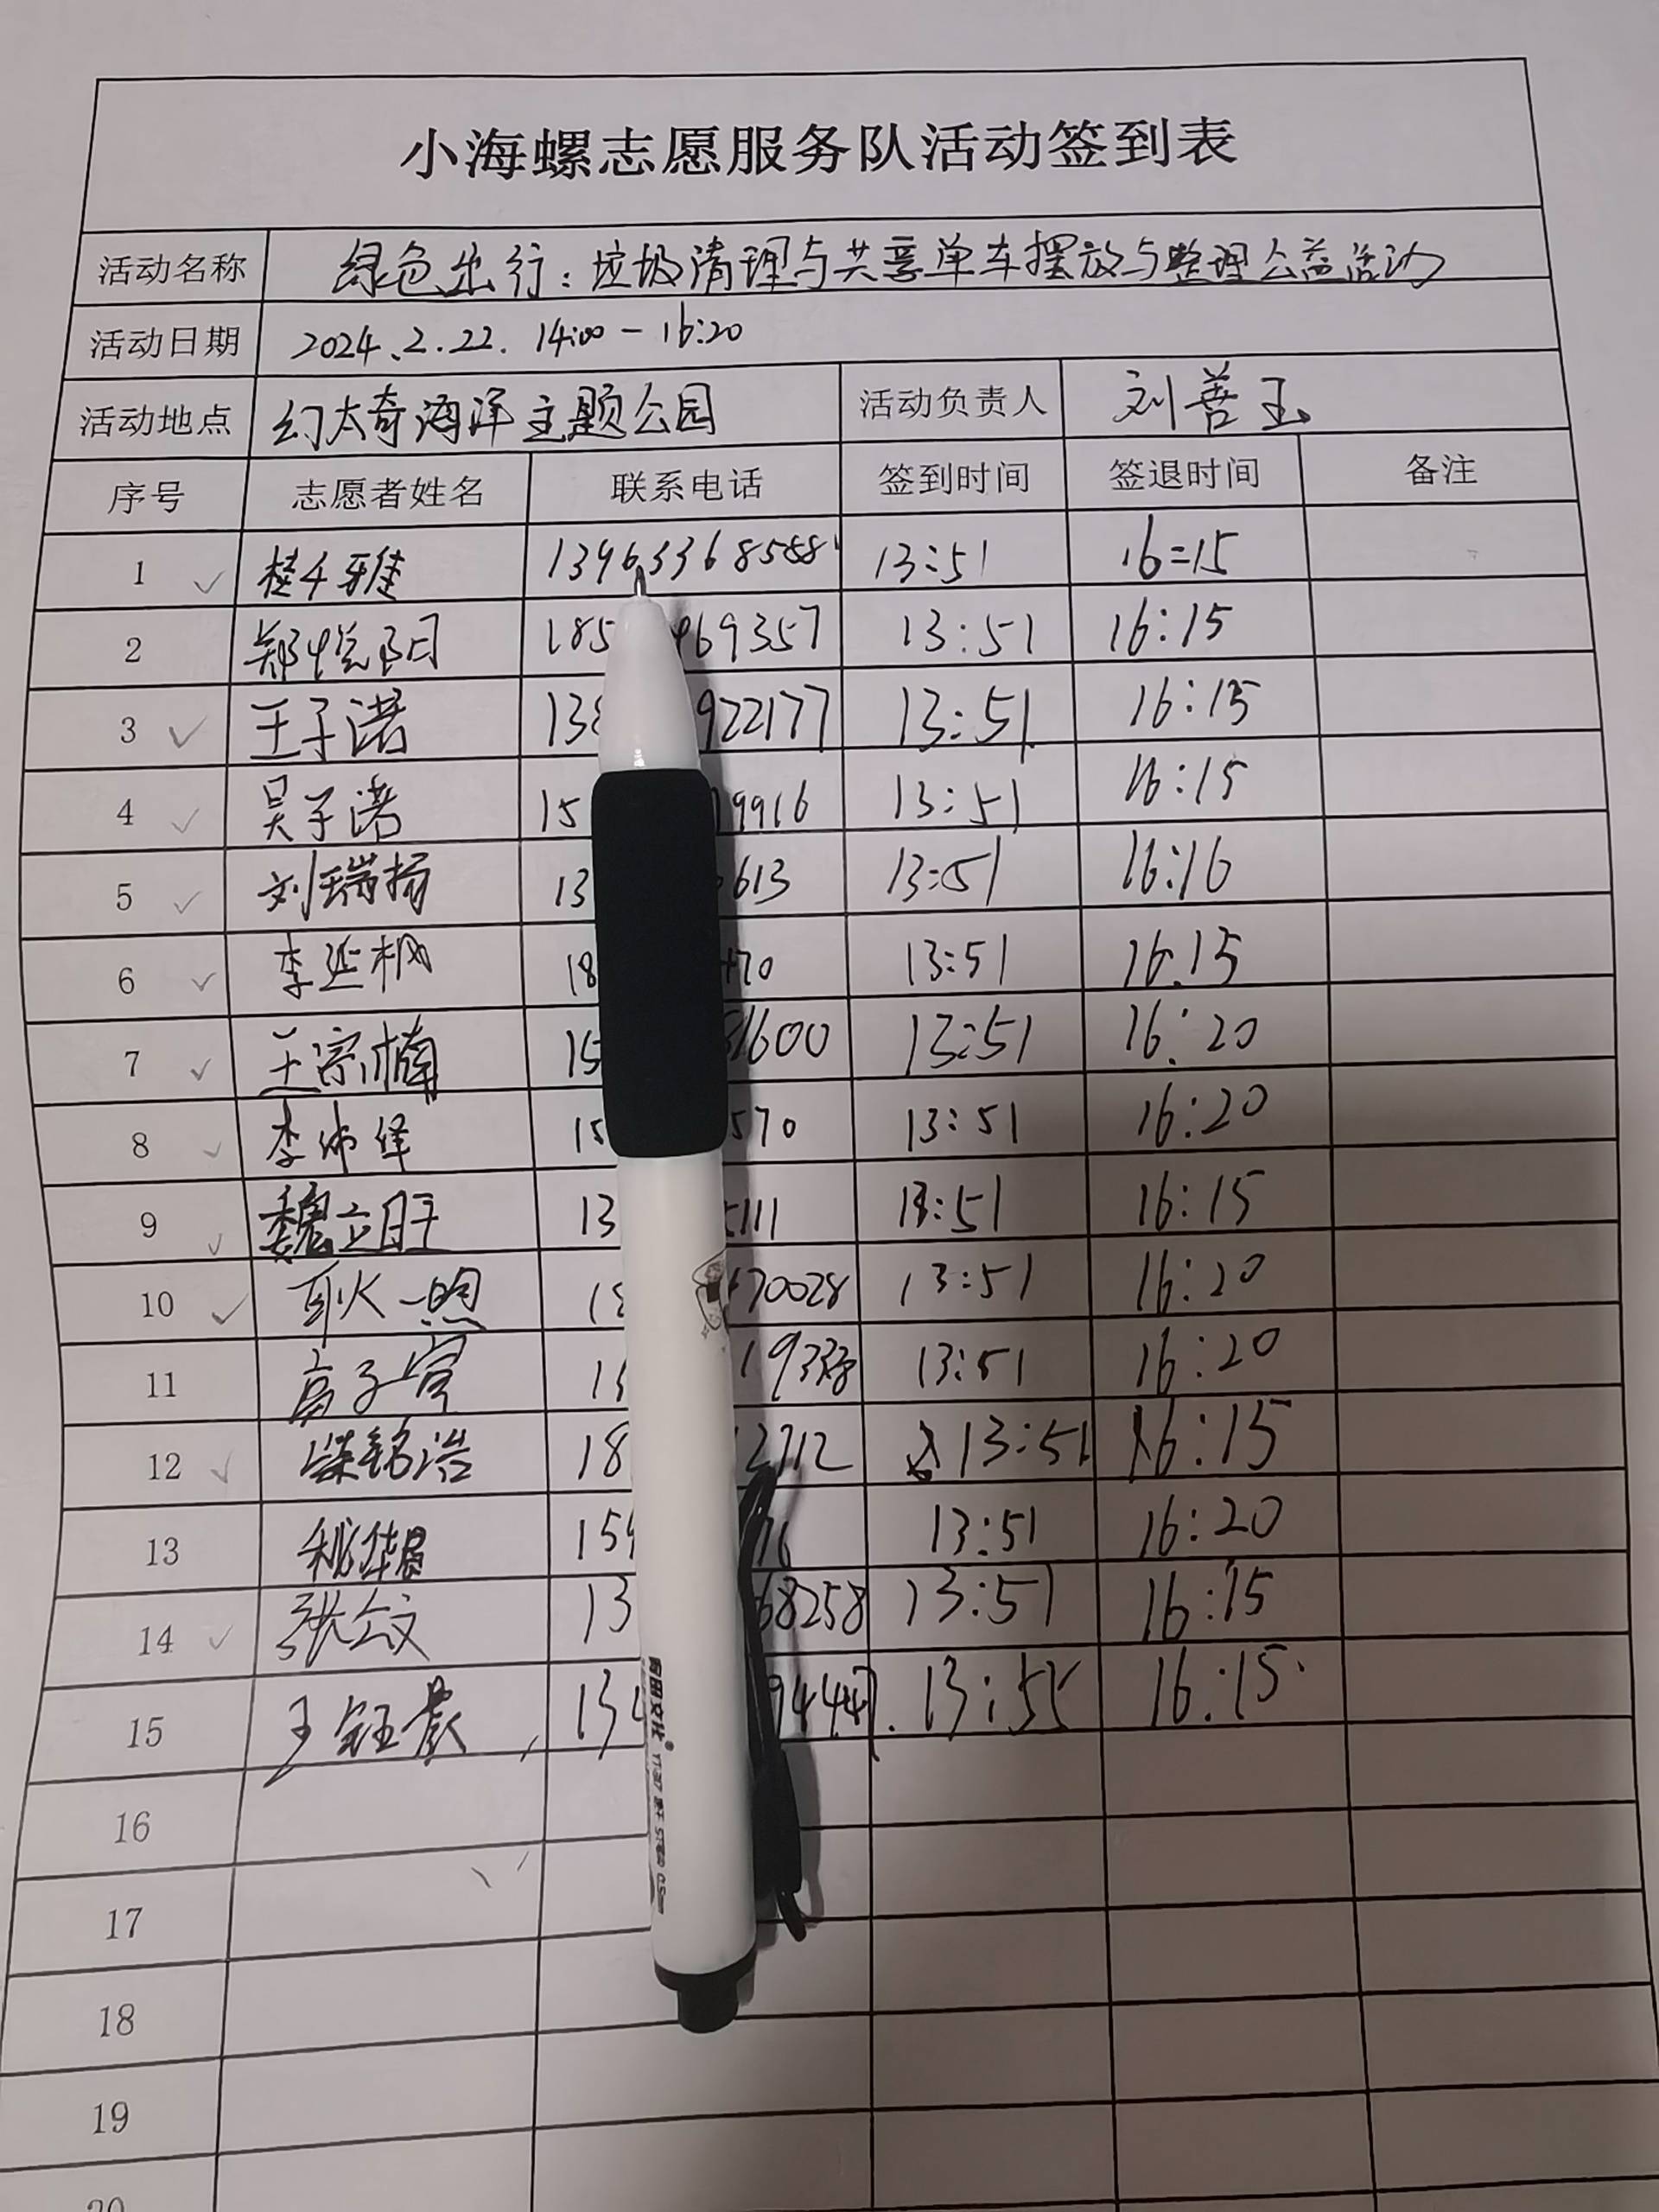 小海螺志愿服务队活动签到表
活动名称 绿色出行：垃圾清理与共享单车摆放与整理公益活动
活动日期 2024.2.22. 14:00-16:20
活动地点 幻太奇海洋主题公园 活动负责人 刘善玉
序号 志愿者姓名 联系电话 签到时间 签退时间 备注
1 13963368588 13:51 16:15
2 郑悦阳 185 469357 13:51 16:15
3 王子诺 138 922177 13:51 16:15
4 吴子诺 15 9916 13:51 16:15
5 刘瑞扬 13 613 13:51 16:16
6 李延枫 18 70 13:51 16:15
7 王宗楠 15 1600 13:51 16:20
8 李沛泽 15 570 13:51 16:20
9 魏立旺 13 5111 13:51 16:15
10 耿一煦 18 70028 13:51 16:20
11 高子甯 19 13:51 16:20
12 梁铭浩 18 2712 13:51 16:15
13 159 76 13:51 16:20
14 张公文 13 68258 13:51 16:15
15 134 9444 16:15
16
17
18
19
20